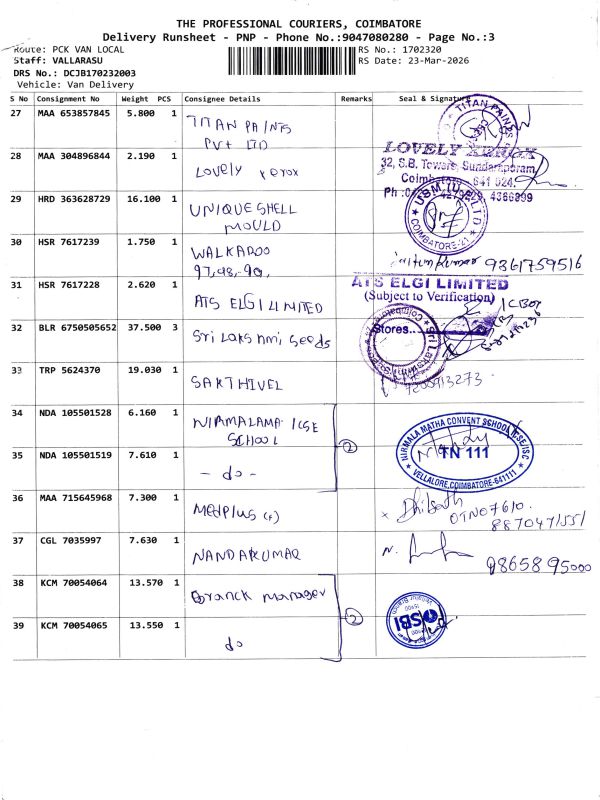 THE PROFESSIONAL COURIERS, COIMBATORE
Delivery Runsheet - PNP - Phone No.:9047080280 - Page No.:3
Route: PCK VAN LOCAL
RS No.: 1702320
Staff: VALLARASU
RS Date: 23-Mar-2026
DRS No.: DCJB170232003
Vehicle: Van Delivery
S No Consignment No Weight PCS Consignee Details Remarks Seal & Signature
27 MAA 653857845 5.800 1 TITAN PAINTS
PVT LTD
TITAN PAINTS
28 MAA 304896844 2.190 1 Lovely xerox
LOVELY XEROX
32, S.B. Towers, Sundarapuram,
29 HRD 363628729 16.100 1 UNIQUE SHELL
MOULD
COIMBATORE-21
30 HSR 7617239 1.750 1 WALKAROO
97,98,-90,
9861759516
31 HSR 7617228 2.620 1 ATS ELGI LIMITED
ATS ELGI LIMITED
(Subject to Verification)
Stores
32 BLR 6750505652 37.500 3 Sri Lakshmi Seeds
33 TRP 5624370 19.030 1 SAKTHIVEL
7200913273
34 NDA 105501528 6.160 1 NIRMALAMA ICSE
SCHOOL
2
NIRMALA MATHA CONVENT SCHOOL ICSE/ISC
TN 111
VELLALORE, COIMBATORE-641111
35 NDA 105501519 7.610 1 - do -
36 MAA 715645968 7.300 1 Medplus
OTNO7610
8870471551
37 CGL 7035997 7.630 1 NANDAKUMAR
N.
9865895000
38 KCM 70054064 13.570 1 Branck manager
2
SBI
39 KCM 70054065 13.550 1 do